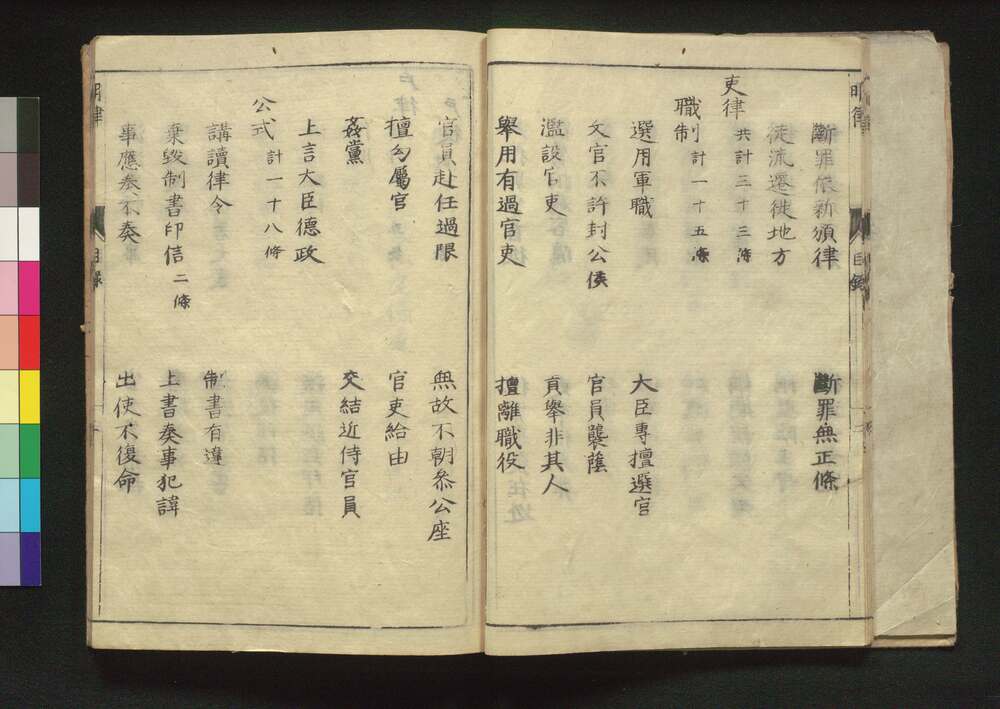 明律
目錄
斷罪依新頒律
斷罪無正條
徒流遷徙地方
吏律 共計三十三條
職制 計一十五條
選用軍職
大臣專擅選官
文官不許封公侯
官員襲蔭
濫設官吏
貢舉非其人
舉用有過官吏
擅離職役
官員赴任過限
無故不朝叅公座
擅勾屬官
官吏給由
姦黨
交結近侍官員
上言大臣德政
公式 計一十八條
講讀律令
制書有違
棄毀制書印信 二條
上書奏事犯諱
事應奏不奏
出使不復命
明律
目錄